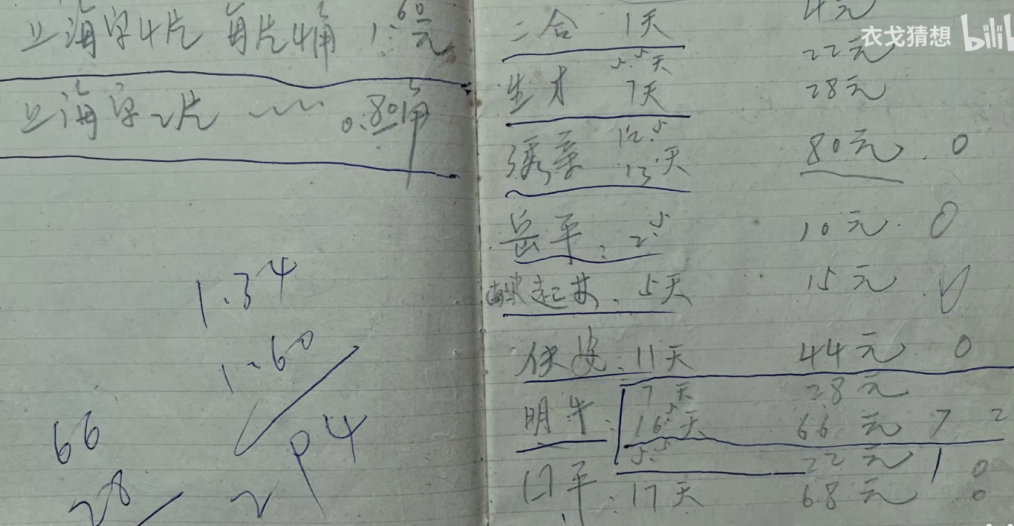 上海字4片 每片4桶 1.60元
上海字2片 0.80角
1.34
1.60
2 94
66
28
二合 1天 4元
衣戈猜想 bilibili
5.5天 22元
生才 7天 28元
12.5
13天 80元 0
岳平: 2.5 10元 0
起林. 5天 15元
伏安: 11天 44元 0
7天 28元
明牛: 16.5天 66元 7 2
5.5 22元 1 0
口平: 17天 68元 0